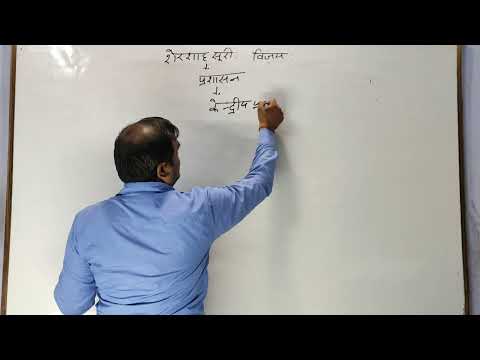 शेरशाह सूरी विजय
प्रशासन
केन्द्रीय